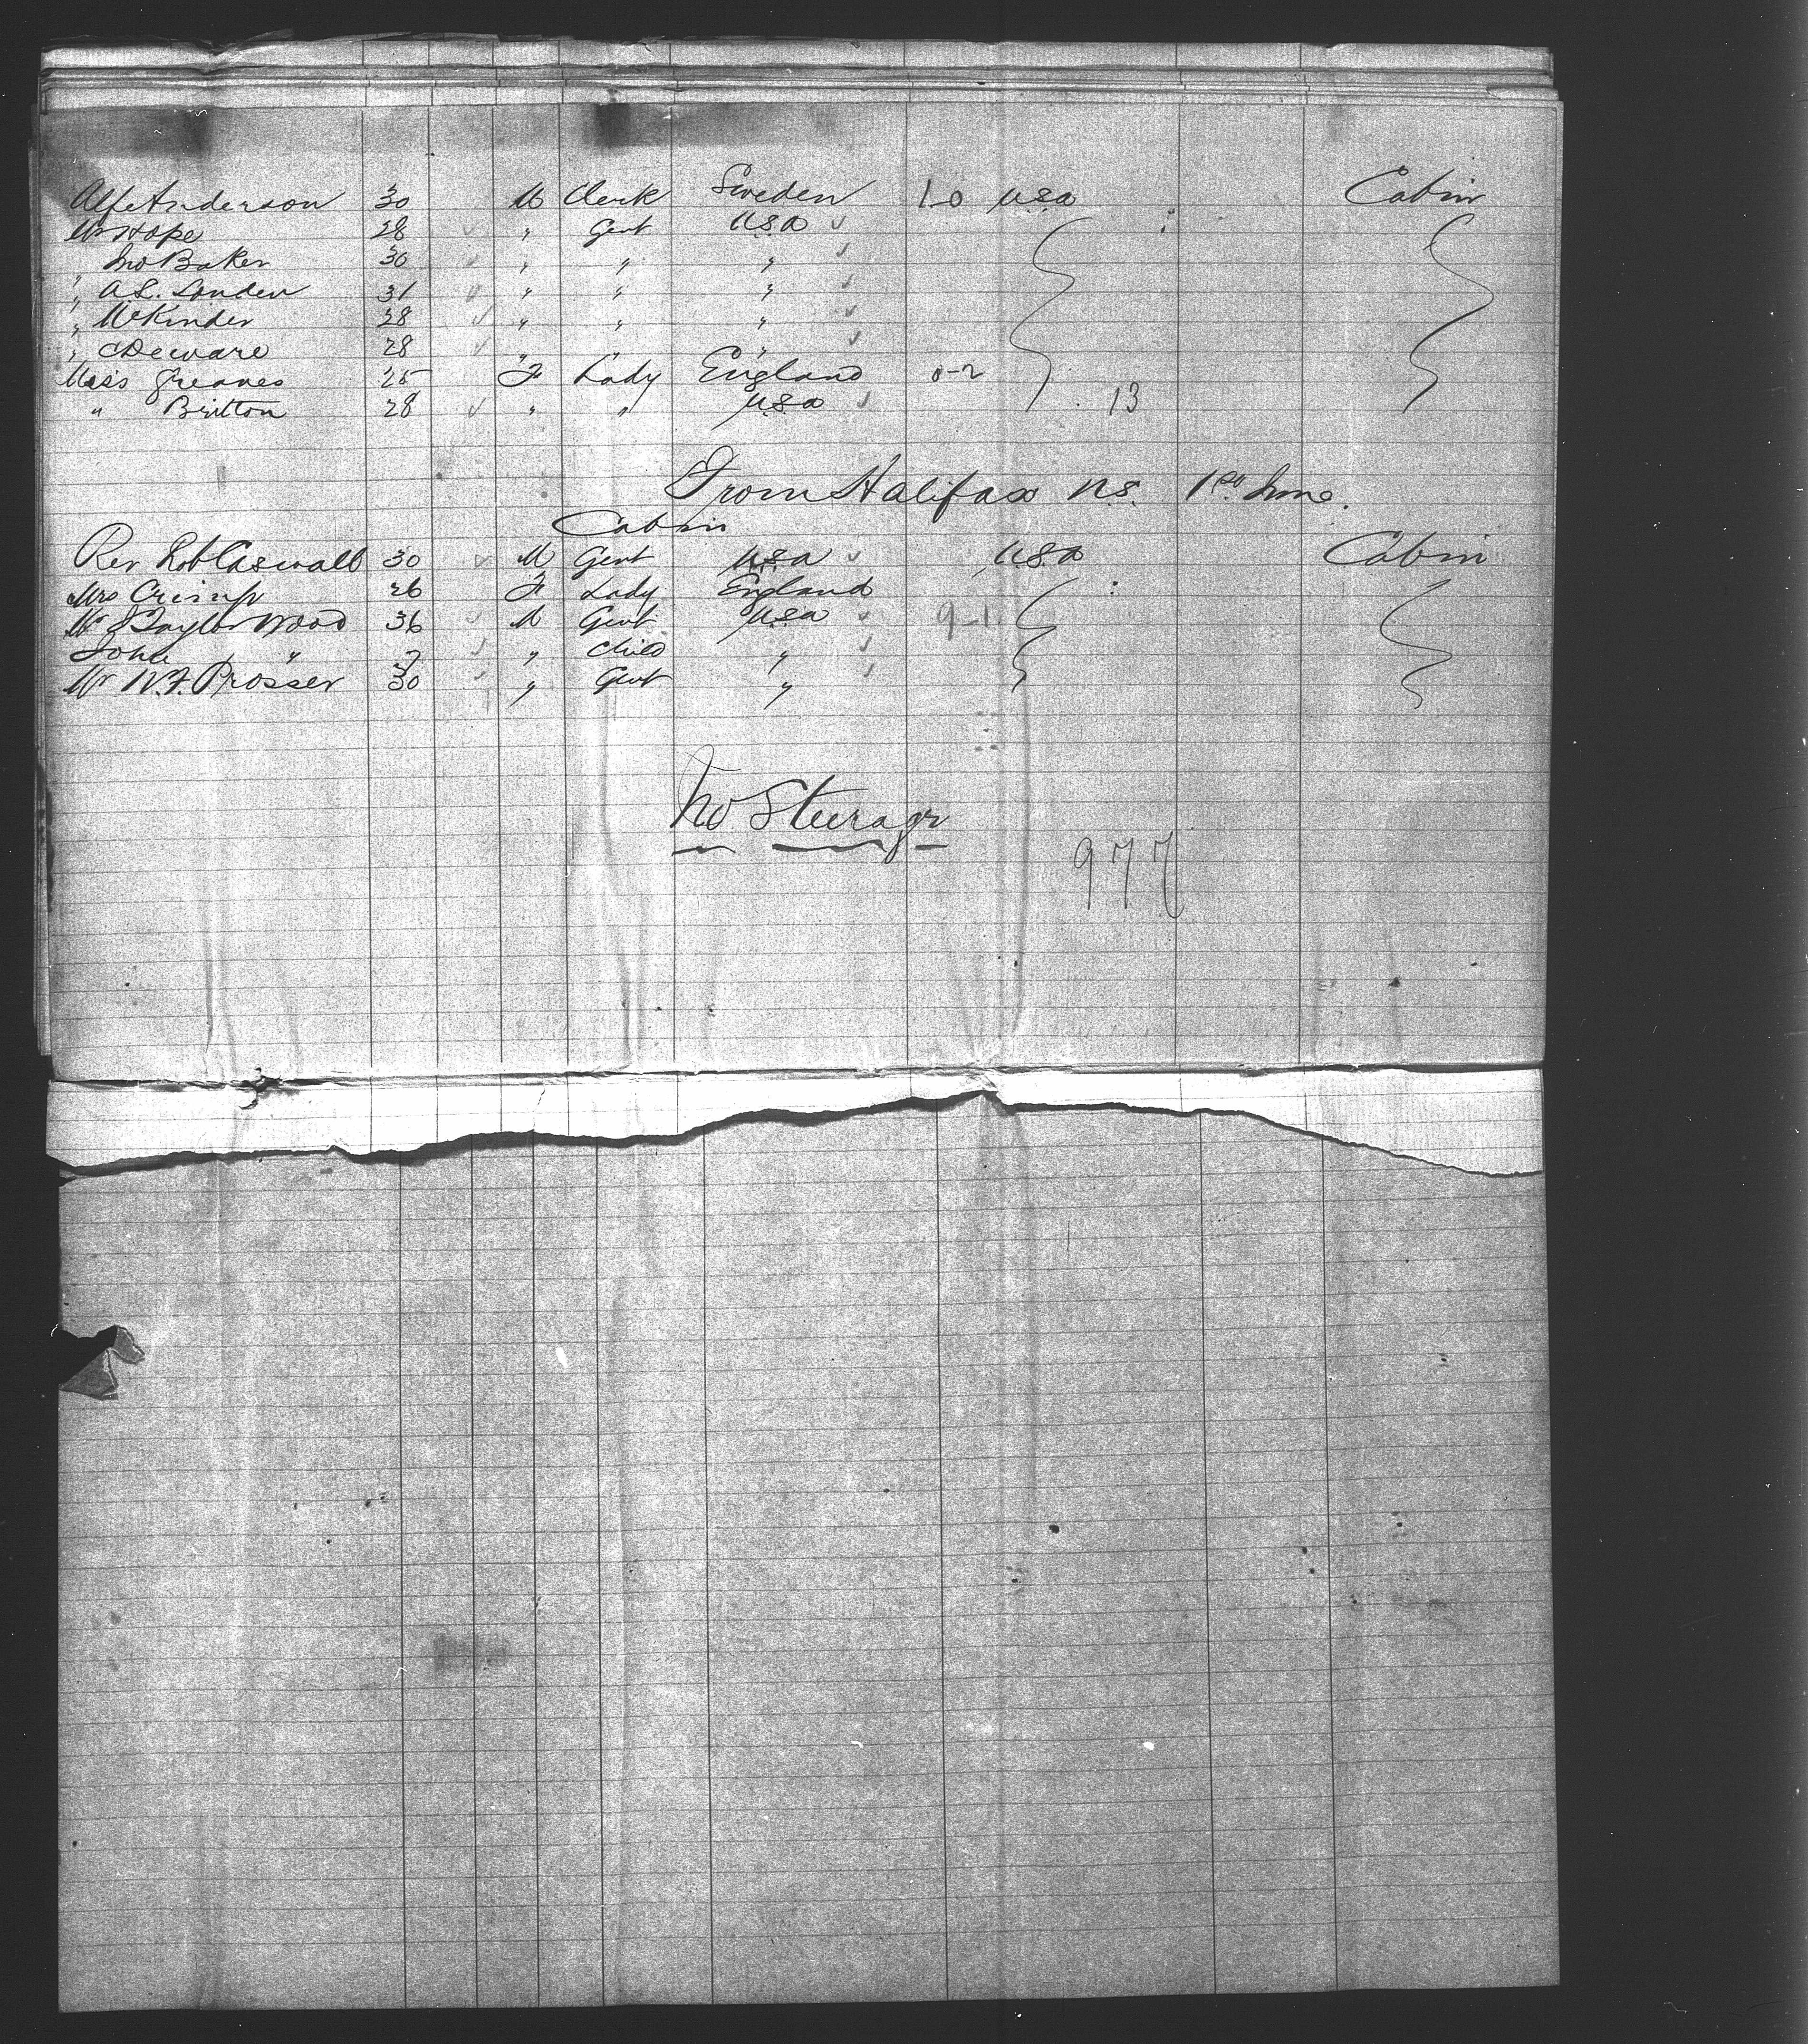 Alf Anderson 30 M Clerk Sweden 1-0 U.S.a Cabin
Mr Hope 28 " Gent U.S.a
" Jno Baker 30 " " "
" A.L. Louden 31 " " "
" McKinder 28 " " "
" C Deware 28 " " "
Miss Greaves 25 F Lady England 0-2
" Britton 28 " " U.S.a 13
From Halifax N.S. 1st June.
Cabin
Rev Robt Caswall 30 M Gent U.S.a U.S.a Cabin
Mrs Crimp 26 F Lady England
Mr J Taylor Wood 36 M Gent U.S.a 9-1
John " 7 " Child "
Mr W.F. Prosser 30 " Gent "
No Steerage
977